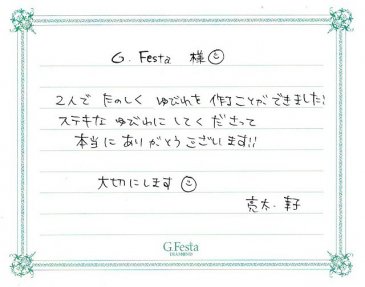 G. Festa 様☺
2人で たのしく ゆびわを 作ることができました!
ステキな ゆびわに してくださって
本当に ありがとうございます!!
大切にします ☺
亮太・幸子
G.Festa
DIAMOND